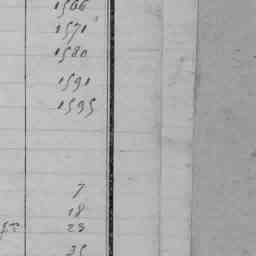 1566
1571
1580
1591
1595
7
18
23
35